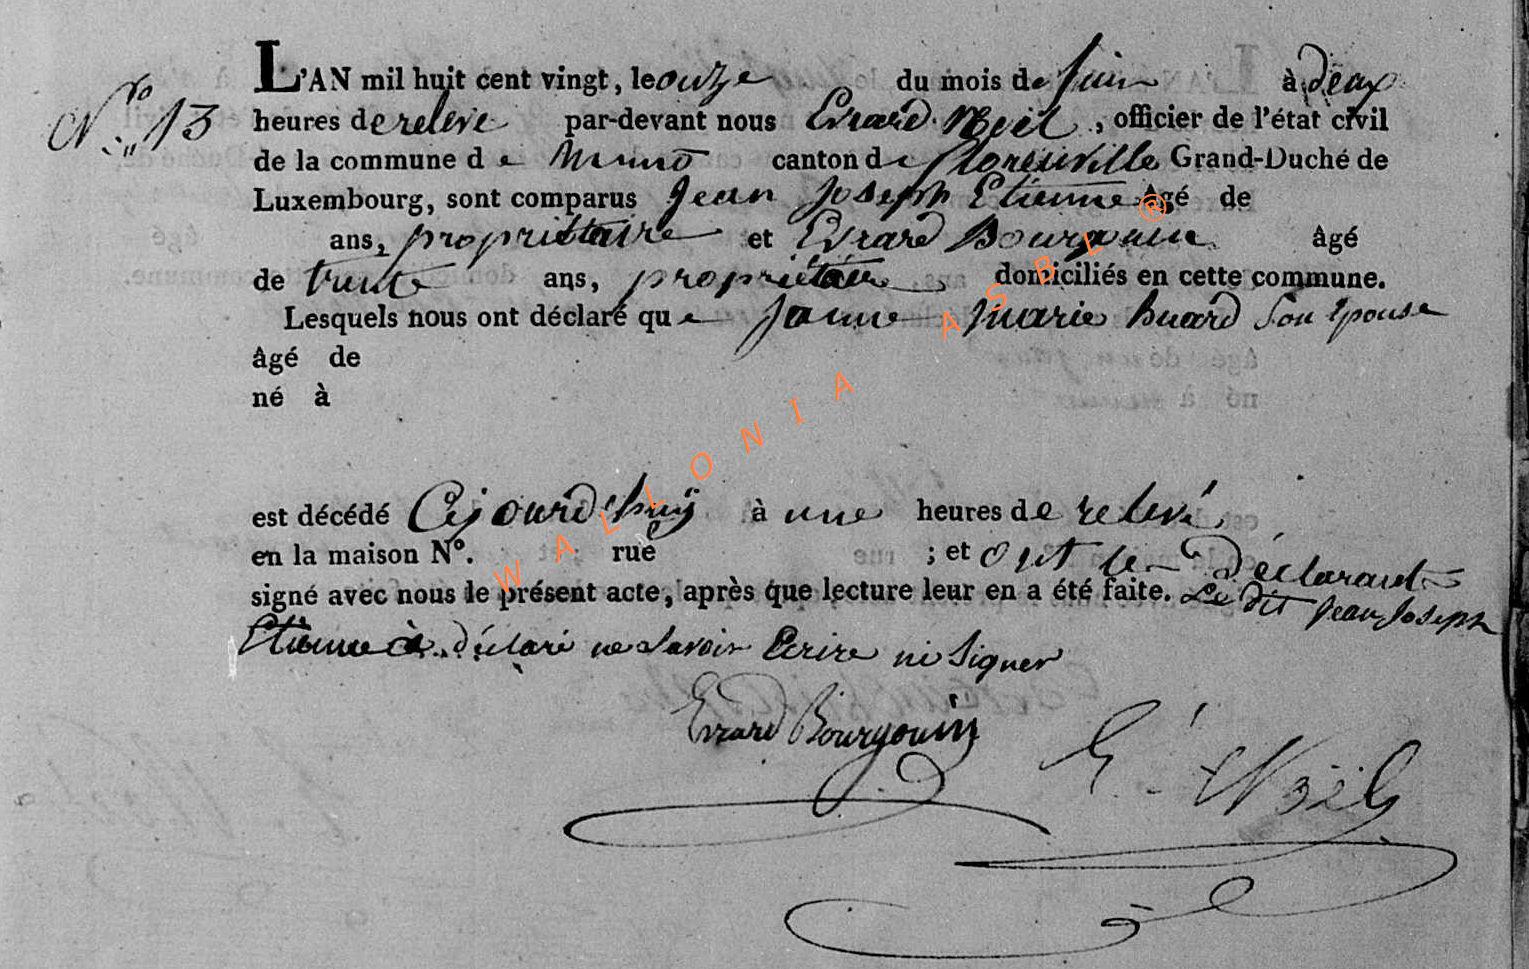 L'AN mil huit cent vingt, le onze du mois de juin à deux
N.ro 13
heures de relevé par-devant nous Evrard Noël, officier de l'état civil
de la commune de Muno canton de florenville Grand-Duché de
Luxembourg, sont comparus Jean Joseph Etienne âgé de
ans, propriétaire et Evrard Bourgouin âgé
de trente ans, propriétaire domiciliés en cette commune.
Lesquels nous ont déclaré que Janne Marie huard Son épouse
âgé de
né à
est décédé Cejourd'huÿ à une heures de relevé
en la maison N°. rue ; et ont les Déclarants
signé avec nous le présent acte, après que lecture leur en a été faite. Le dit Jean Joseph
Etienne à déclaré ne Savoir Ecrire ni Signer
Evrard Bourgouin
E. Noël
WALLONIA ASBL ®